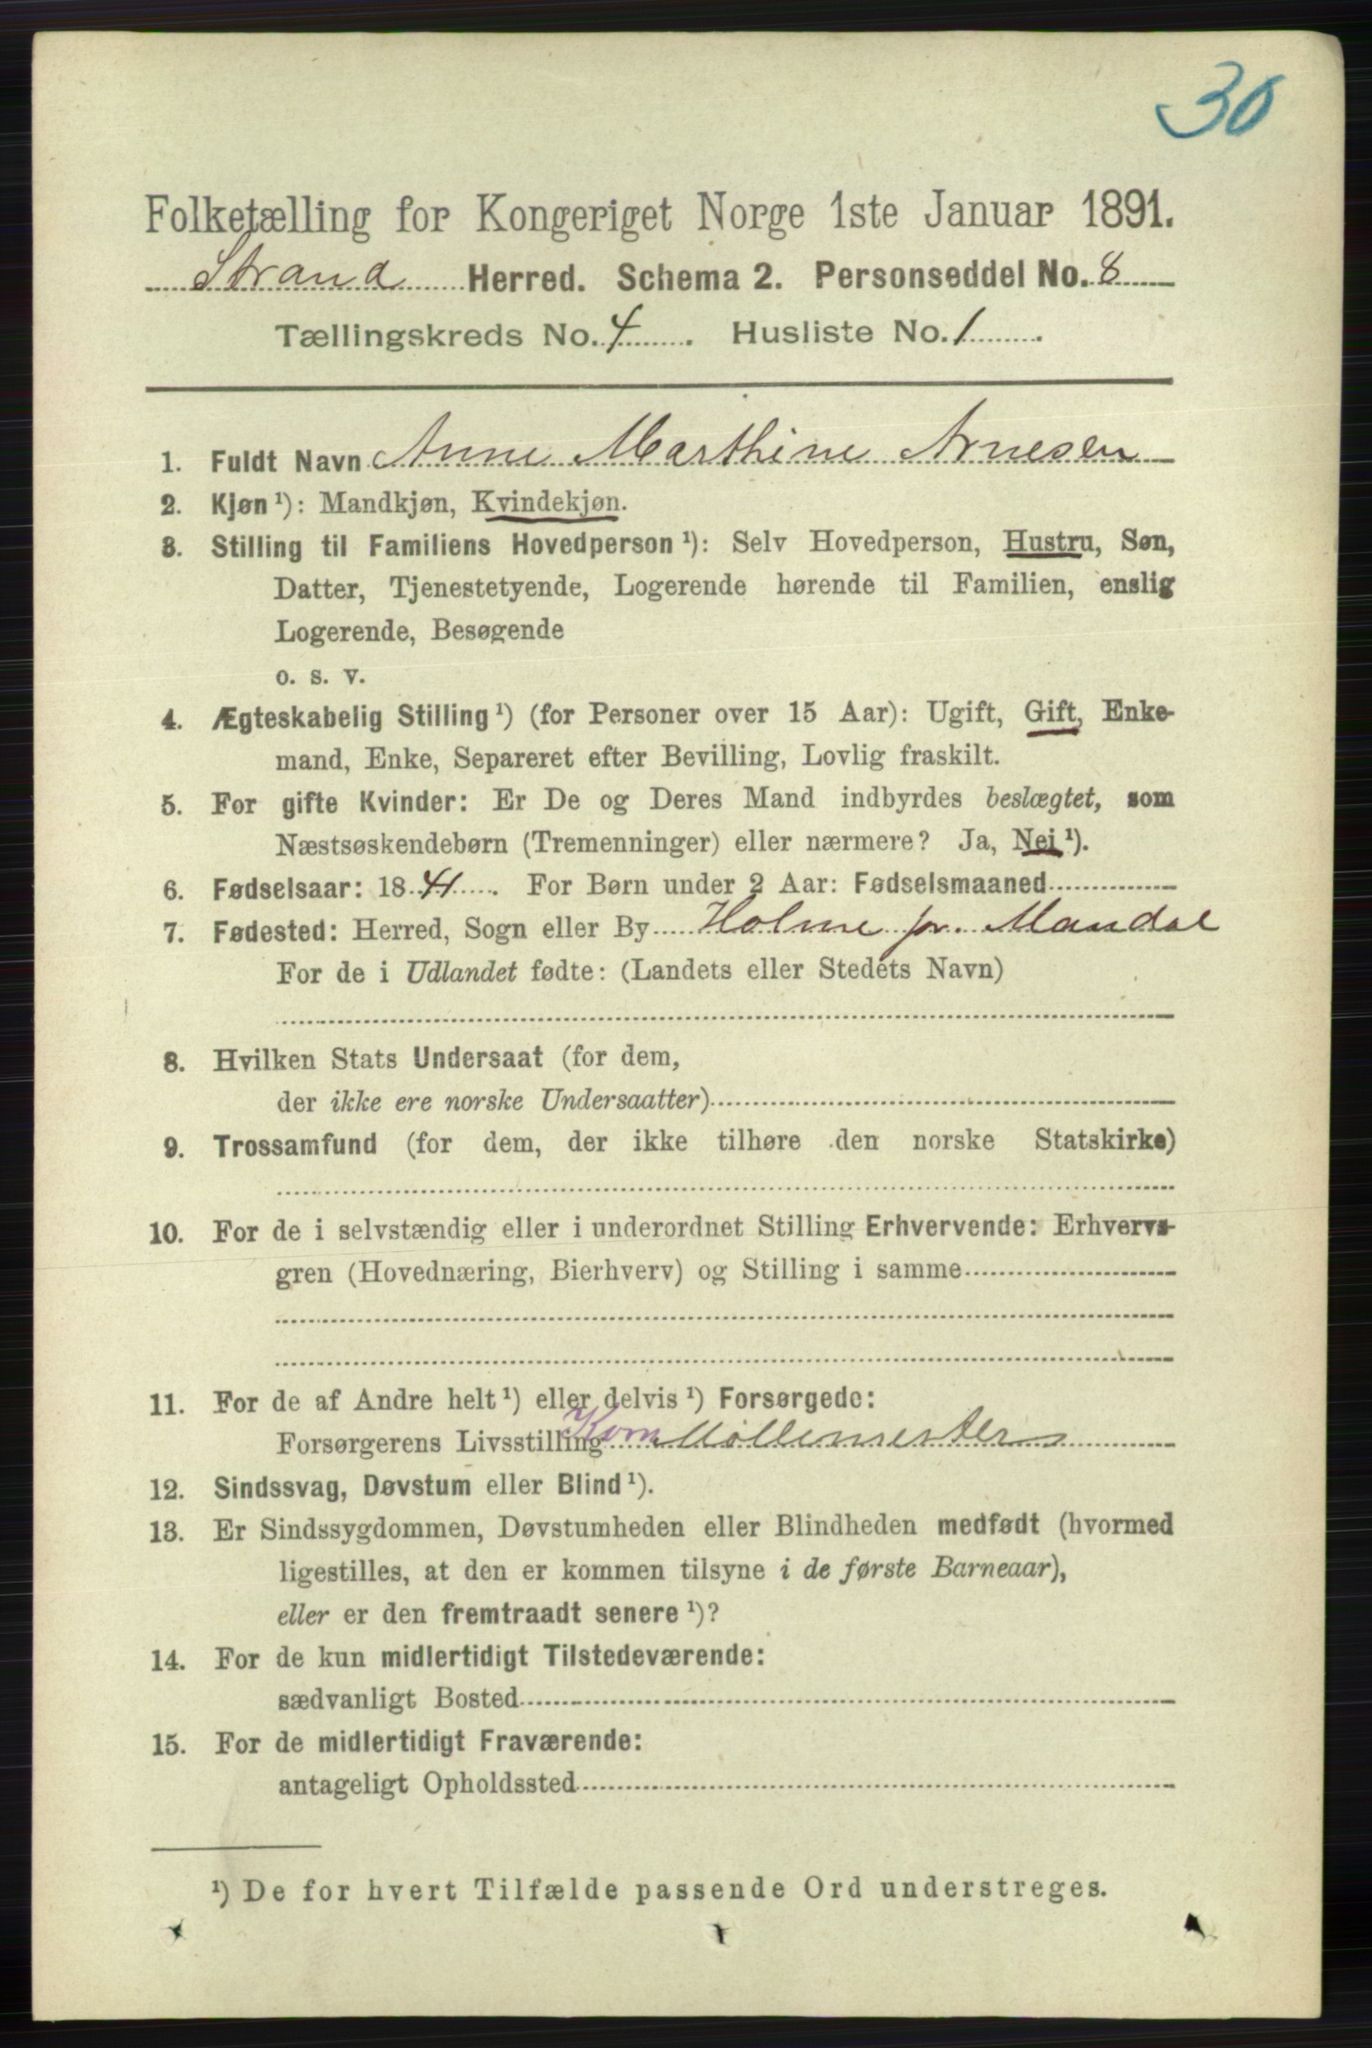 30
Folketælling for Kongeriget Norge 1ste Januar 1891.
Strand Herred. Schema 2. Personseddel No. 8
Tællingskreds No. 4. Husliste No. 1.
1. Fuldt Navn Anne Marthine Arnesen
2. Kjøn ¹): Mandkjøn, Kvindekjøn.
3. Stilling til Familiens Hovedperson ¹): Selv Hovedperson, Hustru, Søn,
Datter, Tjenestetyende, Logerende hørende til Familien, enslig
Logerende, Besøgende
o. s. v.
4. Ægteskabelig Stilling ¹) (for Personer over 15 Aar): Ugift, Gift, Enke-
mand, Enke, Separeret efter Bevilling, Lovlig fraskilt.
5. For gifte Kvinder: Er De og Deres Mand indbyrdes beslægtet, som
Næstsøskendebørn (Tremenninger) eller nærmere? Ja, Nei ¹).
6. Fødselsaar: 1841. For Børn under 2 Aar: Fødselsmaaned
7. Fødested: Herred, Sogn eller By Holme pr. Mandal
For de i Udlandet fødte: (Landets eller Stedets Navn)
8. Hvilken Stats Undersaat (for dem,
der ikke ere norske Undersaatter)
9. Trossamfund (for dem, der ikke tilhøre den norske Statskirke)
10. For de i selvstændig eller i underordnet Stilling Erhvervende: Erhvervs-
gren (Hovednæring, Bierhverv) og Stilling i samme
11. For de af Andre helt ¹) eller delvis ¹) Forsørgede:
Forsørgerens Livsstilling Korn Møllemester
12. Sindssvag, Døvstum eller Blind ¹).
13. Er Sindssygdommen, Døvstumheden eller Blindheden medfødt (hvormed
ligestilles, at den er kommen tilsyne i de første Barneaar),
eller er den fremtraadt senere ¹)?
14. For de kun midlertidigt Tilstedeværende:
sædvanligt Bosted
15. For de midlertidigt Fraværende:
antageligt Opholdssted
¹) De for hvert Tilfælde passende Ord understreges.